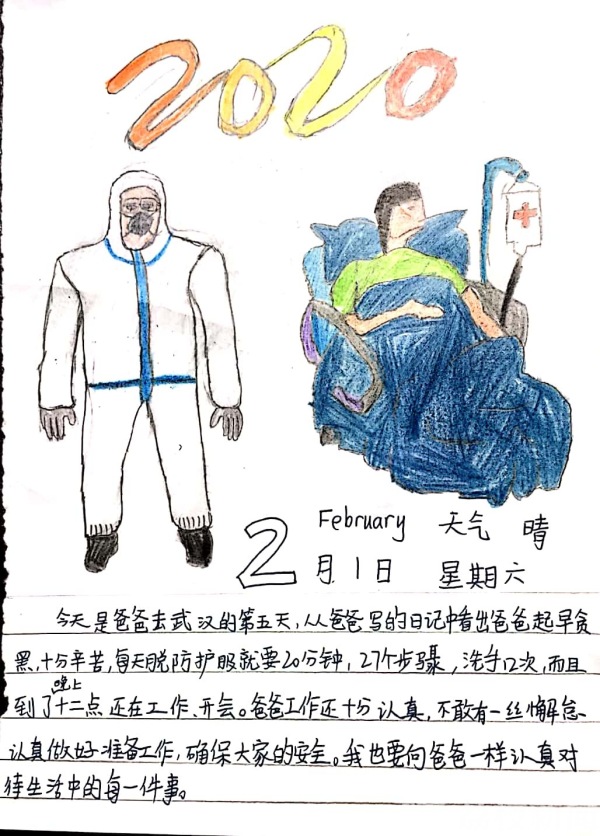 2020
2 February 天气 晴
月1日 星期六
今天是爸爸去武汉的第五天,从爸爸写的日记中看出爸爸起早贪
黑,十分辛苦,每天脱防护服就要20分钟,27个步骤,洗手12次,而且
到了晚上十二点还在工作、开会。爸爸工作还十分认真,不敢有一丝懈怠
认真做好准备工作,确保大家的安全。我也要向爸爸一样认真对
待生活中的每一件事。